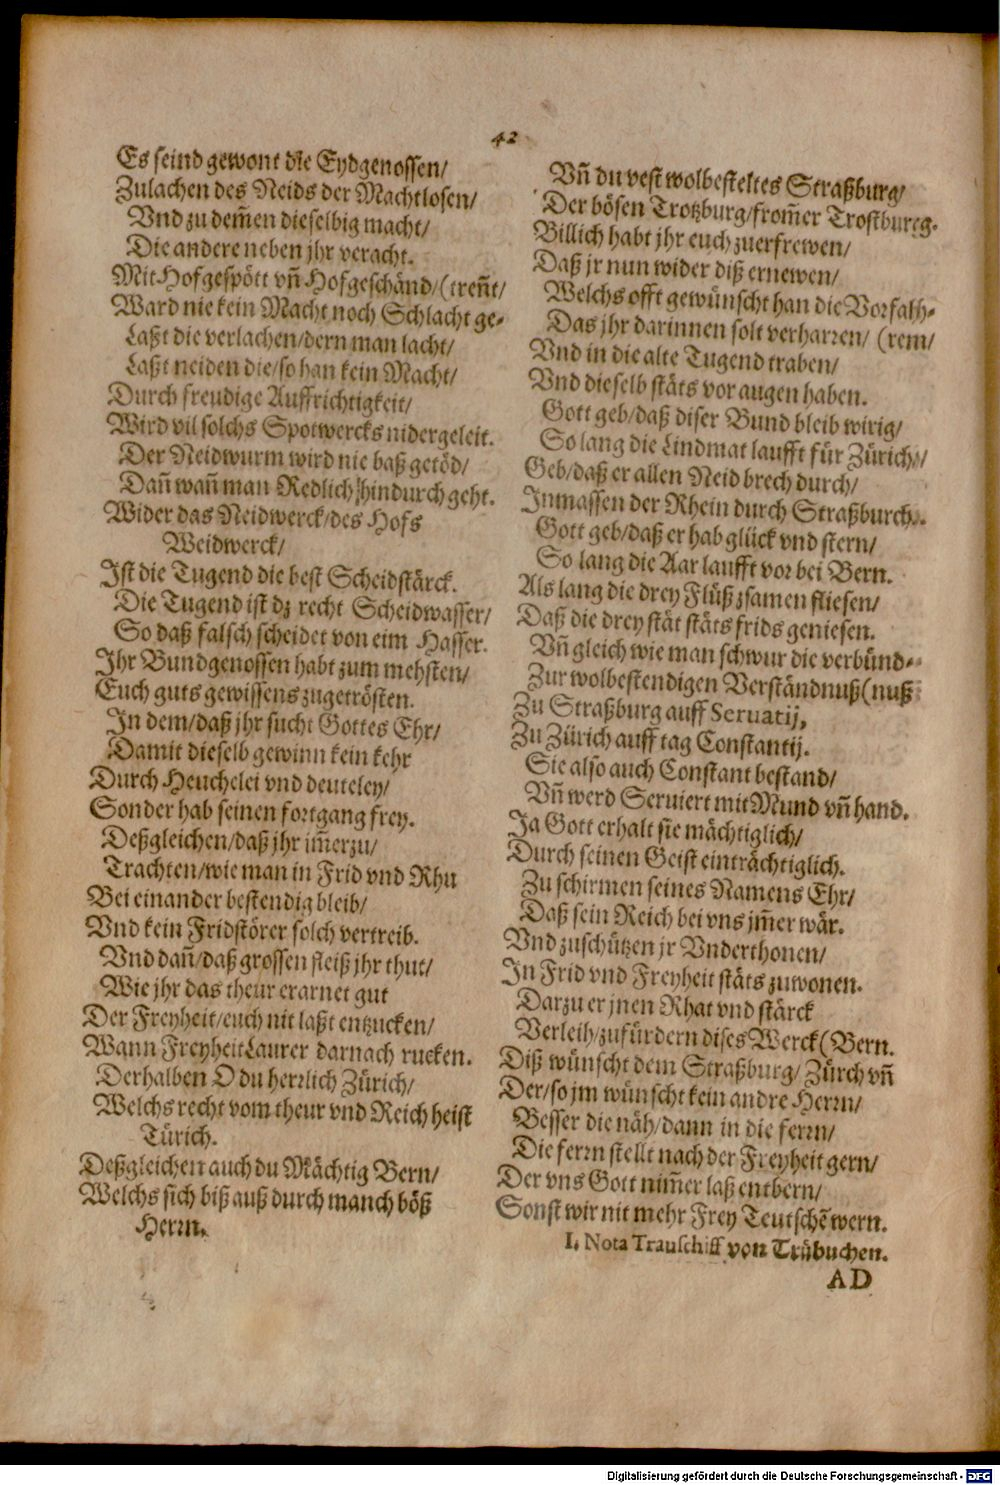 42
Es seind gewont die Eydgenossen/
Zulachen des Neids der Machtlosen/
Vnd zu dem̃en dieselbig macht/
Die andere neben jhr veracht.
Mit Hofgespött vñ Hofgeschänd/(treñt/
Ward nie kein Macht noch Schlacht ge-
Laßt die verlachen/dern man lacht/
Laßt neiden die/so han kein Macht/
Durch freudige Auffrichtigkeit/
Wird vil solchs Spotwercks nidergeleit.
Der Neidwurm wird nie baß getöd/
Dañ wañ man Redlich hindurch geht.
Wider das Neidwerck/des Hofs
Weidwerck/
Ist die Tugend die best Scheidstärck.
Die Tugend ist dz recht Scheidwasser/
So daß falsch scheidet von eim Hasser.
Ihr Bundgenossen habt zum mehsten/
Euch guts gewissens zugetrösten.
In dem/daß jhr sucht Gottes Ehr/
Damit dieselb gewinn kein kehr
Durch Heuchelei vnd deuteley/
Sonder hab seinen fortgang frey.
Deßgleichen/daß jhr im̃erzu/
Trachten/wie man in Frid vnd Rhu
Bei einander bestendig bleib/
Vnd kein Fridstörer solch vertreib.
Vnd dañ/daß grossen fleiß jhr thut/
Wie jhr das theur erarnet gut
Der Freyheit/euch nit laßt entzucken/
Wann FreyheitLaurer darnach rucken.
Derhalben O du herrlich Zürich/
Welchs recht vom theur vnd Reich heist
Türich.
Deßgleichen auch du Mächtig Bern/
Welchs sich biß auß durch manch böß
Herrn.
Vñ du vest wolbesteltes Straßburg/
Der bösen Trotzburg/from̃er Trostburg.
Billich habt jhr euch zuerfrewen/
Daß jr nun wider diß ernewen/
Welchs offt gewünscht han die Vorfahh-
Das jhr darinnen solt verharren/ (rem/
Vnd in die alte Tugend traben/
Vnd dieselb stäts vor augen haben.
Gott geb/daß diser Bund bleib wirig/
So lang die Lindmat laufft für Zürich/
Geb/daß er allen Neid brech durch/
Inmassen der Rhein durch Straßburch.
Gott geb/daß er hab glück vnd stern/
So lang die Aar laufft vor bei Bern.
Als lang die drey Flüß zsamen fliesen/
Daß die drey stät stäts frids geniesen.
Vñ gleich wie man schwur die verbünd-
Zur wolbestendigen Verständnuß(nuß
Zu Straßburg auff Seruatij,
Zu Zürich auff tag Constantij.
Sie also auch Constant bestand/
Vñ werd Seruiert mit Mund vñ hand.
Ja Gott erhalt sie mächtiglich/
Durch seinen Geist einträchtiglich.
Zu schirmen seines Namens Ehr/
Daß sein Reich bei vns jm̃er wär.
Vnd zuschützen jr Vnderthonen/
In Frid vnd Freyheit stäts zuwonen.
Darzu er jnen Rhat vnd stärck
Verleih/zufürdern dises Werck(Bern.
Diß wünscht dem Straßburg/ Zürch vñ
Der/so jm wünscht kein andre Herrn/
Besser die näh/dann in die ferrn/
Die ferrn stellt nach der Freyheit gern/
Der vns Gott nim̃er laß entbern/
Sonst wir nit mehr Frey Teutschẽ wern.
I. Nota Trauschiff von Trübuchen.
AD
Digitalisierung gefördert durch die Deutsche Forschungsgemeinschaft - DFG